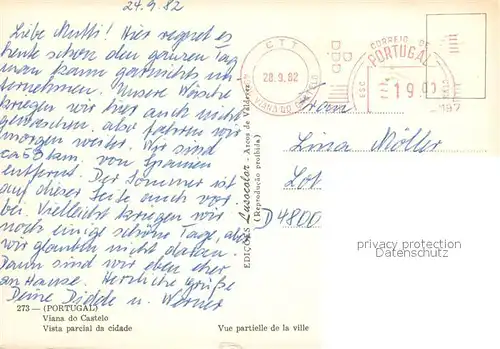 24.9.82
Liebe Mutti! Hier regnet es
heute schon den ganzen Tag
man kann garnichts un
ternehmen. Unsere Wäsche
kriegen wir hier auch nicht
gewaschen, also fahren wir
morgen weiter. Wir sind
ca 53 km von Spanien
entfernt. Der Sommer ist
auf dieser Seite auch vor
bei. Vielleicht kriegen wir
noch einige schöne Tage, aber
wir glauben nicht daran.
Dann sind wir eben eher
an Hause. Herzliche Grüße
Deine Didde u. Werner
273 — (PORTUGAL)
Viana do Castelo
Vista parcial da cidade
Vue partielle de la ville
EDIÇÕES Lusocolor - Arcos de Valdevez
(Reprodução proibida.)
CTT
28.9.82
VIANA DO CASTELO
CORREIO DE
PORTUGAL
ESC
19.00
Frau
Lina Möller
D 4800
privacy protection
Datenschutz